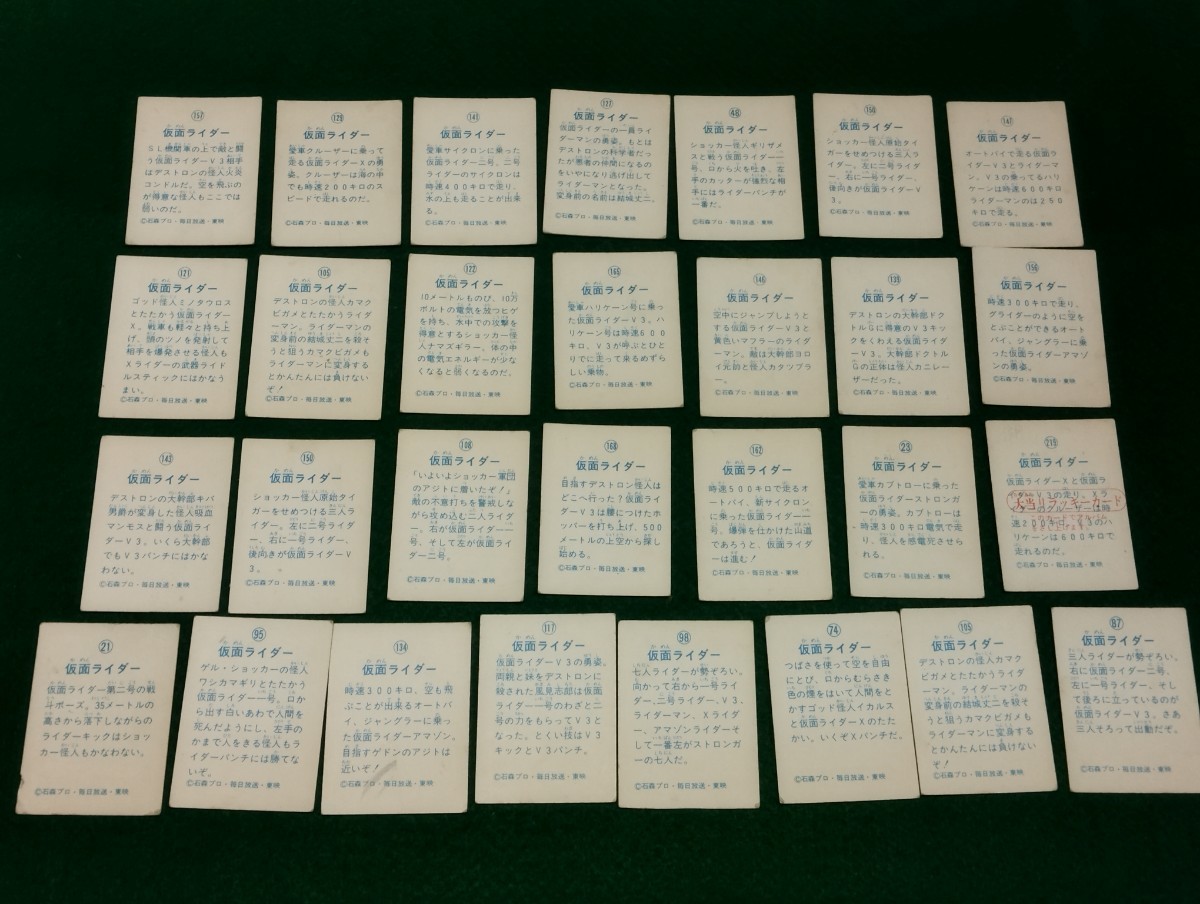 151
仮面ライダー
SL機関車の上で敵と闘
う仮面ライダーV3相手
はデストロンの怪人火炎
コンドルだ。空を飛ぶのが
得意な怪人もここでは
弱いのだ。
©石森プロ・毎日放送・東映
129
仮面ライダー
愛車クルーザーに乗って
走る仮面ライダーXの勇
姿。クルーザーは海の中
でも時速200キロのス
ピードで走れるのだ。
©石森プロ・毎日放送・東映
141
仮面ライダー
愛車サイクロンに乗った
仮面ライダー二号。二号
ライダーのサイクロンは
時速400キロで走り、
水の上も走ることが出来
る。
©石森プロ・毎日放送・東映
127
仮面ライダー
仮面ライダーの一員ライ
ダーマンの勇姿。もとは
デストロンの科学者だっ
たが悪者の仲間になるの
をいやになり逃げ出して
ライダーマンとなった。
変身前の名前は結城丈二。
©石森プロ・毎日放送・東映
48
仮面ライダー
ショッカー怪人ギリザメ
スと戦う仮面ライダー一
号。口から火を吐き、左
手のカッターが強烈な相
手にはライダーパンチが
一番だ。
©石森プロ・毎日放送・東映
150
仮面ライダー
ショッカー怪人原始タイ
ガーをせめつける三人ラ
イダー。左に二号ライダ
ー、右に一号ライダー、
後向きが仮面ライダーV
3。
©石森プロ・毎日放送・東映
147
仮面ライダー
オートバイで走る仮面ラ
イダーV3とライダーマ
ン。V3の乗ってるハリ
ケーンは時速600キロ、
ライダーマンのは250
キロで走る。
©石森プロ・毎日放送・東映
121
仮面ライダー
ゴッド怪人ミノタウロス
とたたかう仮面ライダー
X。戦車も軽々と持ち上
げ、頭のツノを発射して
相手を爆発させる怪人も
Xライダーの武器ライド
ルスティックにはかなう
まい。
©石森プロ・毎日放送・東映
105
仮面ライダー
デストロンの怪人カマク
ビガメとたたかうライダ
ーマン。ライダーマンの
変身前の結城丈二を殺そ
うと狙うカマクビガメも
ライダーマンに変身する
とかんたんには負けない
ぞ!
©石森プロ・毎日放送・東映
122
仮面ライダー
10メートルものび、10万
ボルトの電気を放つヒゲ
を持ち、水中での攻撃を
得意とするショッカー怪
人ナマズギラー。体の中
の電気エネルギーが少な
くなると弱くなるのだ。
©石森プロ・毎日放送・東映
165
仮面ライダー
愛車ハリケーン号に乗っ
た仮面ライダーV3。ハ
リケーン号は時速600
キロ。V3が呼ぶとひと
りでに走って来るめずら
しい乗物。
©石森プロ・毎日放送・東映
146
仮面ライダー
空中にジャンプしようと
する仮面ライダーV3と
黄色いマフラーのライダ
ーマン。敵は大幹部ヨロ
イ元帥と怪人カタツブラ
ー。
©石森プロ・毎日放送・東映
139
仮面ライダー
デストロンの大幹部ドク
トルGに得意のV3キッ
クをくわえる仮面ライダ
ーV3。大幹部ドクトル
Gの正体は怪人カニレー
ザーだった。
©石森プロ・毎日放送・東映
156
仮面ライダー
時速300キロで走り、
グライダーのように空を
とぶことができるオート
バイ、ジャングラーに乗
った仮面ライダーアマゾ
ンの勇姿。
©石森プロ・毎日放送・東映
143
仮面ライダー
デストロンの大幹部キバ
男爵が変身した怪人吸血
マンモスと闘う仮面ライ
ダーV3。いくら大幹部
でもV3パンチにはかな
わない。
©石森プロ・毎日放送・東映
150
仮面ライダー
ショッカー怪人原始タイ
ガーをせめつける三人ラ
イダー。左に二号ライダ
ー、右に一号ライダー、
後向きが仮面ライダーV
3。
©石森プロ・毎日放送・東映
108
仮面ライダー
「いよいよショッカー軍団
のアジトに着いたぞ!」
敵の不意打ちを警戒しな
がら攻め込む二人ライダ
ー。右が仮面ライダー一
号、そして左が仮面ライ
ダー二号。
©石森プロ・毎日放送・東映
160
仮面ライダー
目指すデストロン怪人は
どこへ行った?仮面ライ
ダーV3は腰につけたホ
ッパーを打ち上げ、500
メートルの上空から探し
始める。
©石森プロ・毎日放送・東映
162
仮面ライダー
時速500キロで走るオ
ートバイ、新サイクロン
に乗った仮面ライダー一
号。爆弾を仕かけた山道
であろうと、仮面ライダ
ーは進む!
©石森プロ・毎日放送・東映
23
仮面ライダー
愛車カブトローに乗った
仮面ライダーストロンガ
ーの勇姿。カブトローは
時速300キロ電気で走
り、怪人を感電死させら
れる。
©石森プロ・毎日放送・東映
215
仮面ライダー
仮面ライダーXと仮面ラ
イダーV3の走り。Xラ
大当りラッキーカード
クルーザーは時
速200キロ、V3のハ
リケーンは600キロで
走れるのだ。
©石森プロ・毎日放送・東映
21
仮面ライダー
仮面ライダー第二号の戦
斗ポーズ。35メートルの
高さから落下しながらの
ライダーキックはショッ
カー怪人もかなわない。
©石森プロ・毎日放送・東映
95
仮面ライダー
ゲル・ショッカーの怪人
ワシカマギリとたたかう
仮面ライダー一号。口か
ら出す白いあわで人間を
死んだようにし、左手の
かまで人をきる怪人もラ
イダーパンチには勝てな
いぞ。
©石森プロ・毎日放送・東映
134
仮面ライダー
時速300キロ、空も飛
ぶことが出来るオートバ
イ、ジャングラーに乗っ
た仮面ライダーアマゾン。
目指すゲドンのアジトは
近いぞ!
©石森プロ・毎日放送・東映
117
仮面ライダー
仮面ライダーV3の勇姿。
両親と妹をデストロンに
殺された風見志郎は仮面
ライダー一号のわざと二
号の力をもらってV3と
なった。とくい技はV3
キックとV3パンチ。
©石森プロ・毎日放送・東映
98
仮面ライダー
七人ライダーが勢ぞろい。
向かって右から一号ライ
ダー、二号ライダー、V3、
ライダーマン、Xライダ
ー、アマゾンライダーそ
して一番左がストロンガ
ーの七人だ。
©石森プロ・毎日放送・東映
74
仮面ライダー
つばさを使って空を自由
にとび、口からむらさき
色の煙をはいて人間をと
かすゴッド怪人イカルス
と仮面ライダーXのたた
かい。いくぞXパンチだ。
©石森プロ・毎日放送・東映
105
仮面ライダー
デストロンの怪人カマク
ビガメとたたかうライダ
ーマン。ライダーマンの
変身前の結城丈二を殺そ
うと狙うカマクビガメも
ライダーマンに変身する
とかんたんには負けない
ぞ!
©石森プロ・毎日放送・東映
87
仮面ライダー
三人ライダーが勢ぞろい。
右に仮面ライダー二号、
左に一号ライダー、そし
て後ろに立っているのが
仮面ライダーV3。さあ
三人そろって出動だぞ。
©石森プロ・毎日放送・東映